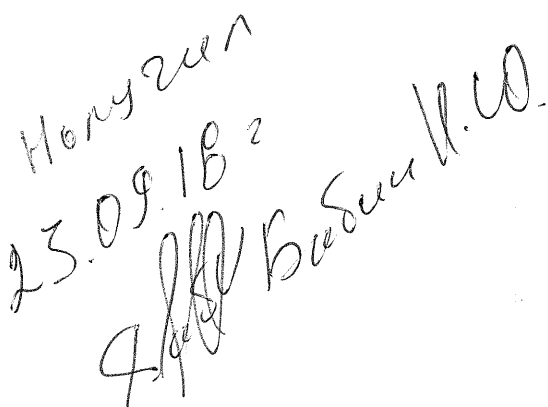 Получил
23.09.18 г
Бабин И.Ю.